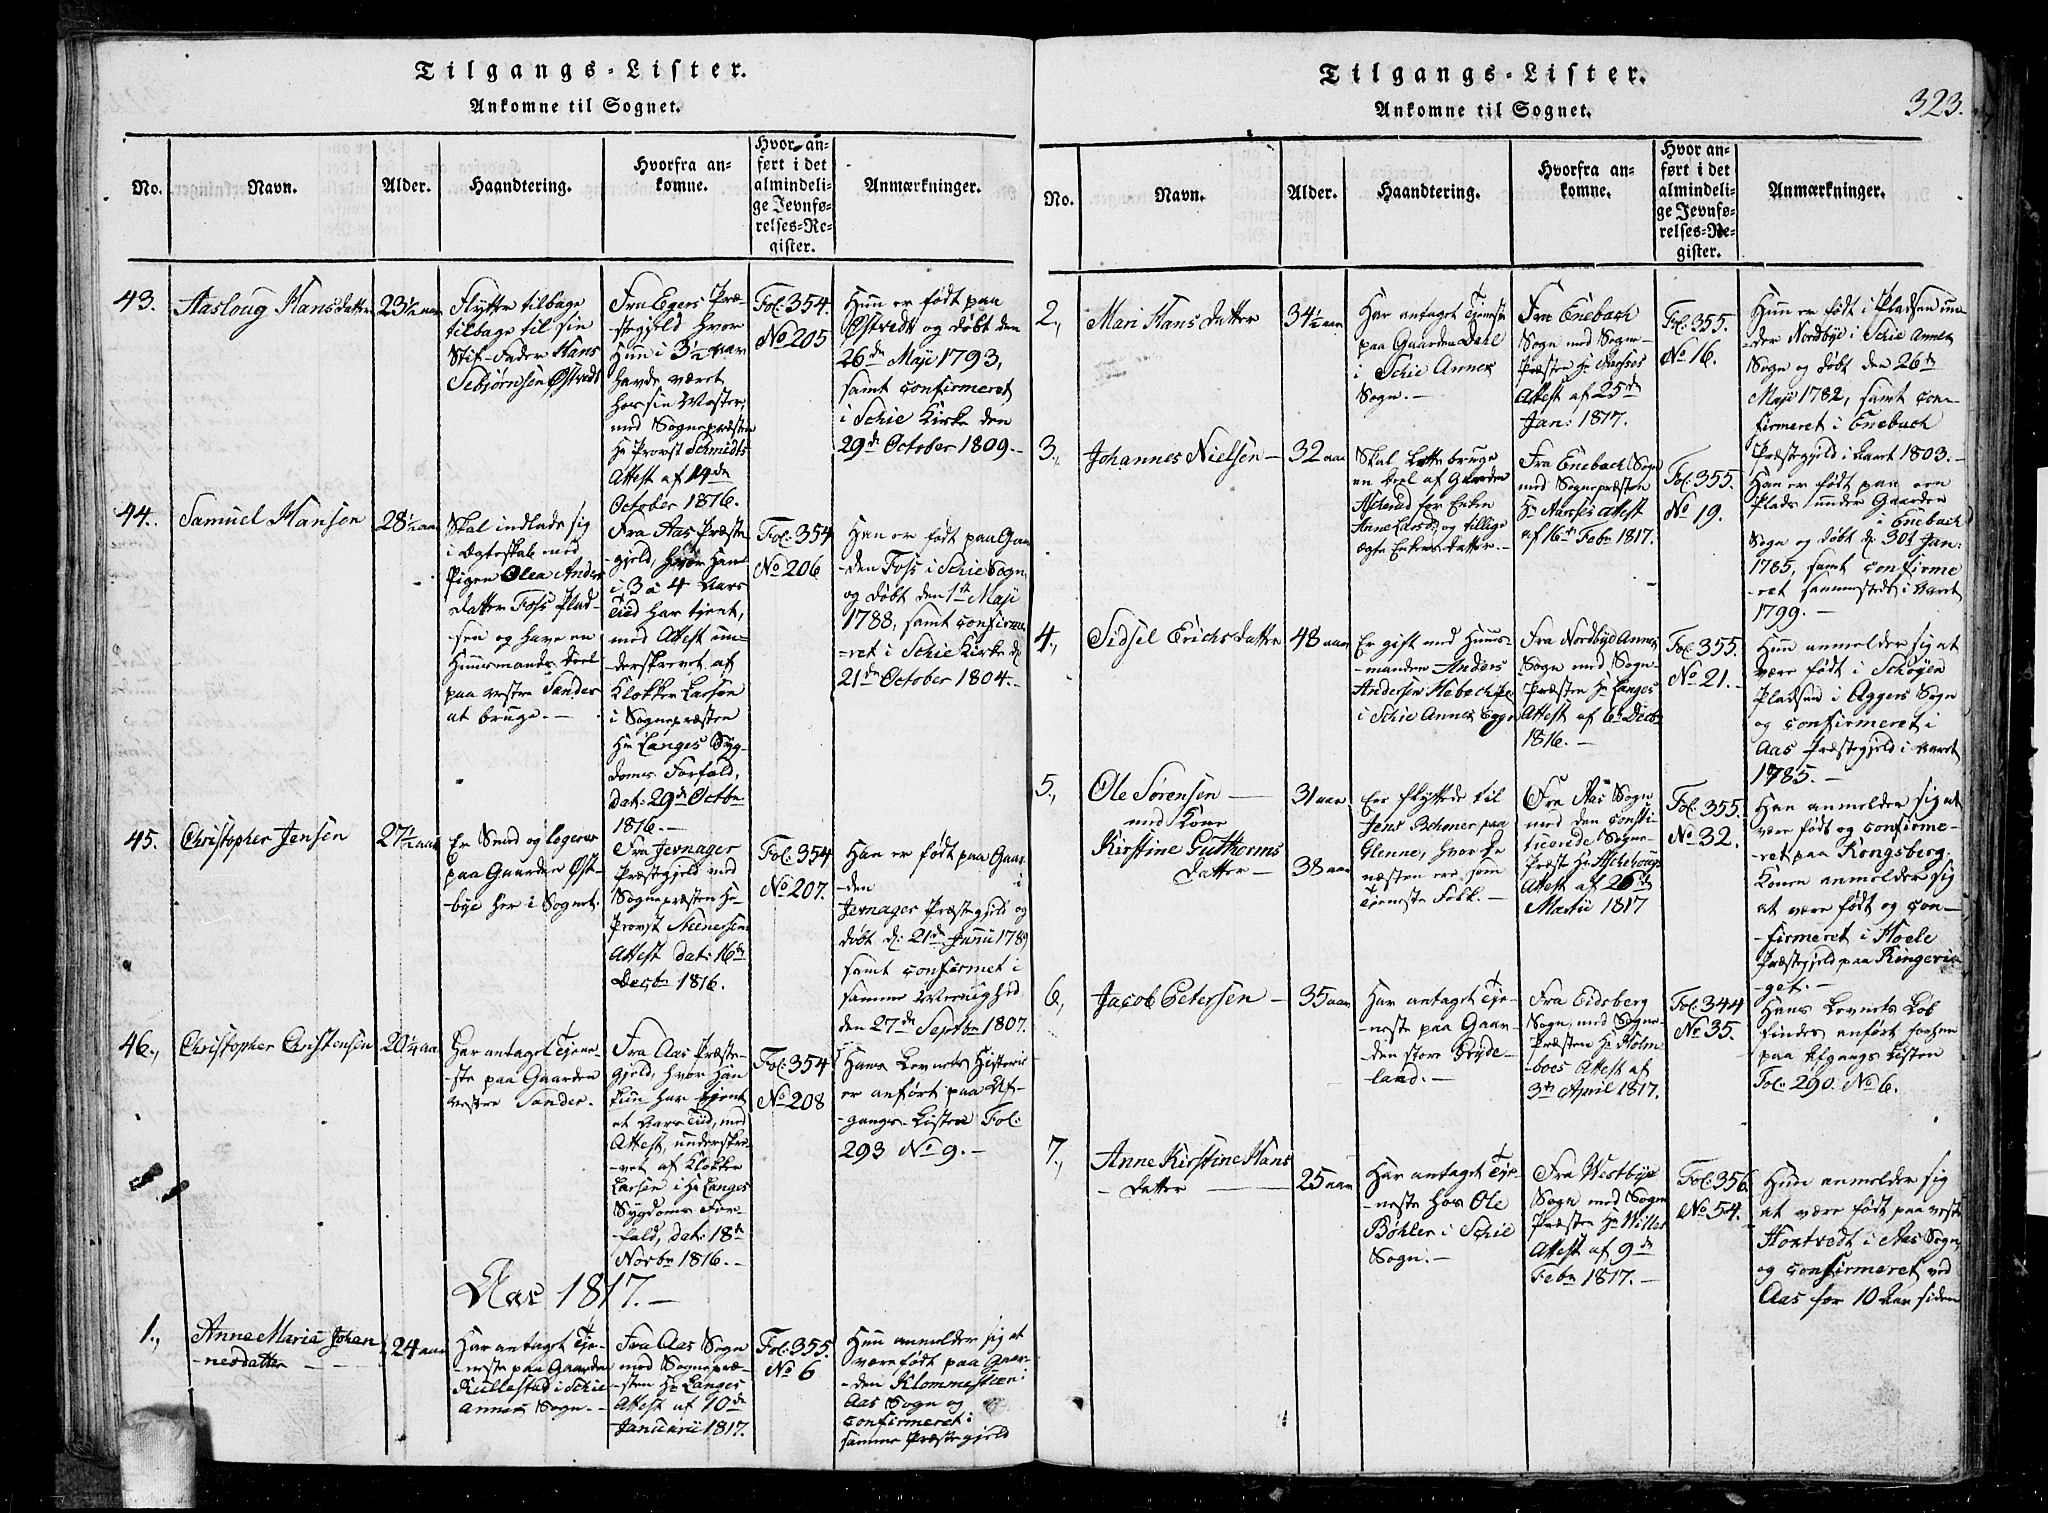 Tilgangs-Lister.
Ankomne til Sognet.
No.
Navn.
Alder.
Haandtering.
Hvorfra an-
komne.
Hvor an-
ført i det
almindeli-
ge Jevnfø-
relses-Re-
gister.
Anmærkninger.
43.
Aasloug Hansdatter
23½ aar
Flytter tilbage
tilbage til sin
Stif-Fader Hans
Sebjørnsen Østvedt
Fra Egers Præ-
stegjeld hvor
Hun i 3½ aar
havde været
hos sin Moster,
med Sognepræsten
Hr Provst Schmidts
Attest af 14de
October 1816.
Fol: 354.
No 205
Hun er født paa
Østvedt og døbt den
26de Maji 1793,
samt confirmeret
i Schie Kirke den
29de October 1809.-
44.
Samuel Hansen
28½ aar
Skal indlade sig
i Ægteskab med
Pigen Olea Anders
Datter Foss Plad-
sen og have en
Huusmands Deel
paa vestre Sander
at bruge.-
Fra Aas Præste-
gjeld, hvor Han
i 3 a 4 Aars
Tiid har tjent,
med Attest un-
derskrevet af
Klokker Larsen
i Sognepræsten
Hr Langes Syg-
doms Forfald,
dat: 29de Octbr
1816.-
Fol: 354
No 206
Han er født paa Gaar
den Foss i Schie Sogn,
og døbt den 1te Maji
1788, samt confirme
-ret i Schie Kirke d:
21de October 1804.-
45.
Christopher Jensen
27½ aar
Er Smed og logerer
paa Gaarden Øst-
bye her i Sognet.
Fra Jevnager
Præstegjeld med
Sognepræsten Hr
Provst Steenersens
Attest dat: 16de
Decbr 1816.
Fol: 354
No 207.
Han er født paa Gaar
-den i
Jevnager Præstegjeld og
døbt d: 21de Junii 1789
samt confirmet i
samme Menighed
den 27de Septbr 1807.
46.,
Christopher Christensen
20¼ aar
Har antaget Tjene-
-ste paa Gaarden
vestre Sander.
Fra Aas Præste-
gjeld, hvor Han
kun har tjent
et Aars Tiid, med
Attest, underskre-
-vet af Klokker
Larsen i Hr Langes
Sygdoms For-
fald, dat: 18de
Novbr 1816.-
Fol: 354
No 208
Hans Levnets Historie
er anført paa Af-
-gangs-Listen Fol:
293 No 9.-
Aar 1817.-
1.,
Anne Maria Johan
-nesdatter
24 aar
Har antaget Tje-
-neste paa Gaarden
Kullestad i Schie
Annex Sogn.-
Fra Aas Sogn
med Sognepræ-
-sten Hr Langes
Attest af 10de
Januarii 1817.
Fol: 355.
No 6
Hun anmelder sig at
være født paa Gaar-
-den Klommesteen i
Aas Sogn og
confirmeret i
samme Præstegjeld
Tilgangs-Lister.
Ankomne til Sognet.
323.
No.
Navn.
Alder.
Haandtering.
Hvorfra an-
komne.
Hvor an-
ført i det
almindeli-
ge Jevnfø-
relses-Re-
gister.
Anmærkninger.
2.,
Mari Hans Datter
34½ aar
Har antaget Tjeneste
paa Gaarden Dahl
i Schie Annex
Sogn.-
Fra Enebach
Sogn med Sogne-
Præsten Hr Aarses
Attest af 25de
Jan: 1817.
Fol: 355.
No 16.
Hun er født i Pladsen un-
-der Nordbye i Schie Annex
Sogn og døbt den 26de
Maji 1782, samt con-
firmeret i Enebach
Præstegjeld i Aaret 1803.-
3.,
Johannes Nielsen-
32 aar
Skal bruge
en Deel af Gaarden
for Enken
Anne Larsd: og tillige
ægte Enkens Datter.-
Fra Enebach Sogn
med Sognepræsten
Hr Aarses Attest
af 16de Febr 1817.
Fol: 355.
No 19.
Han er født paa een
Plads under Gaarden
i Enebach
Sogn og døbt d: 30te Jan:
1785, samt confirme
-ret sammesteds i Aaret
1799.-
4.,
Sidsel Erichs Datter
48 aar
Er gift med Huus-
-manden Anders
Andersen
i Schie Annex Sogn
Fra Nordbye Annex
Sogn med Sogne-
Præsten Hr Langes
Attest af 6te Decbr
1816.-
Fol: 355.
No 21.-
Hun anmelder sig at
være født i Schøyen
Pladsen i Aggers Sogn
og confirmeret i
Aas Præstegjeld i Aaret
1785.-
5.,
Ole Sørensen
med Kone
Kirstine Guthorms
Datter-
31 aar
38 aar
Ere flyttede til
Jens Behmer paa
Glenne, hvor de
næsten ere som
Tjeneste Folk.-
Fra Aas Sogn
med den consti-
tuerede Sogne-
Præst Hr Aschehougs
Attest af 26de
Martii 1817
Fol: 355.
No 32.
Han anmelder sig at
være født og confirme-
-ret paa Kongsberg.
Konen anmelder sig
at være født og con-
-firmeret i Hoele
Præstegjeld paa Ringeri-
get.-
6.,
Jacob Petersen-
35 aar
Har antaget Tje-
neste paa Gaar-
-den store Gryde-
land.-
Fra Eidsberg
Sogn, med Sogne-
Præsten Hr Holm-
boes Attest af
3de April 1817.
Fol: 344
No 35.
Hans Levnets Løb
findes anført forhen
paa Afgangs Listen
Fol: 290. No 6.
7.,
Anne Kirstine Hans
-Datter
25 aar
Har antaget Tje-
-neste hos Ole
Bøhler i Schie
Sogn.-
Fra Westbye
Sogn med Sogne
Præsten Hr Willes
Attest af 9de
Febr 1817.-
Fol: 356.
No 54.
Hun anmelder sig
at være født paa vestre
Hortvedt i Aas Sogn,
og confirmeret ved
Aas for 10 Aar siden